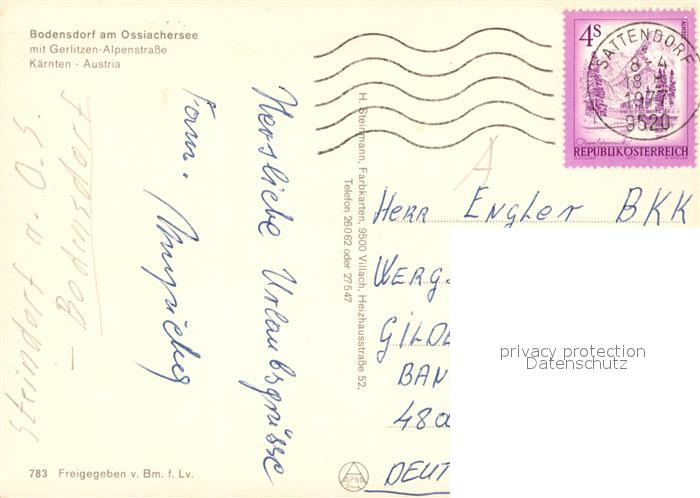 Bodensdorf am Ossiachersee
mit Gerlitzen-Alpenstraße
Kärnten - Austria
Herzliche Urlaubsgrüsse
Fam.
Steindorf a. O. S.
– Bodensdorf
783 Freigegeben v. Bm. f. Lv.
H. Steinmann, Farbkarten, 9500 Villach, Heizhausstraße 52,
Telefon 26062 oder 27547
4S
SATTENDORF
1977
9520
REPUBLIK ÖSTERREICH
A
Herr Engler BKK
WERG
GILDE
BAN
48
DEUT
privacy protection
Datenschutz